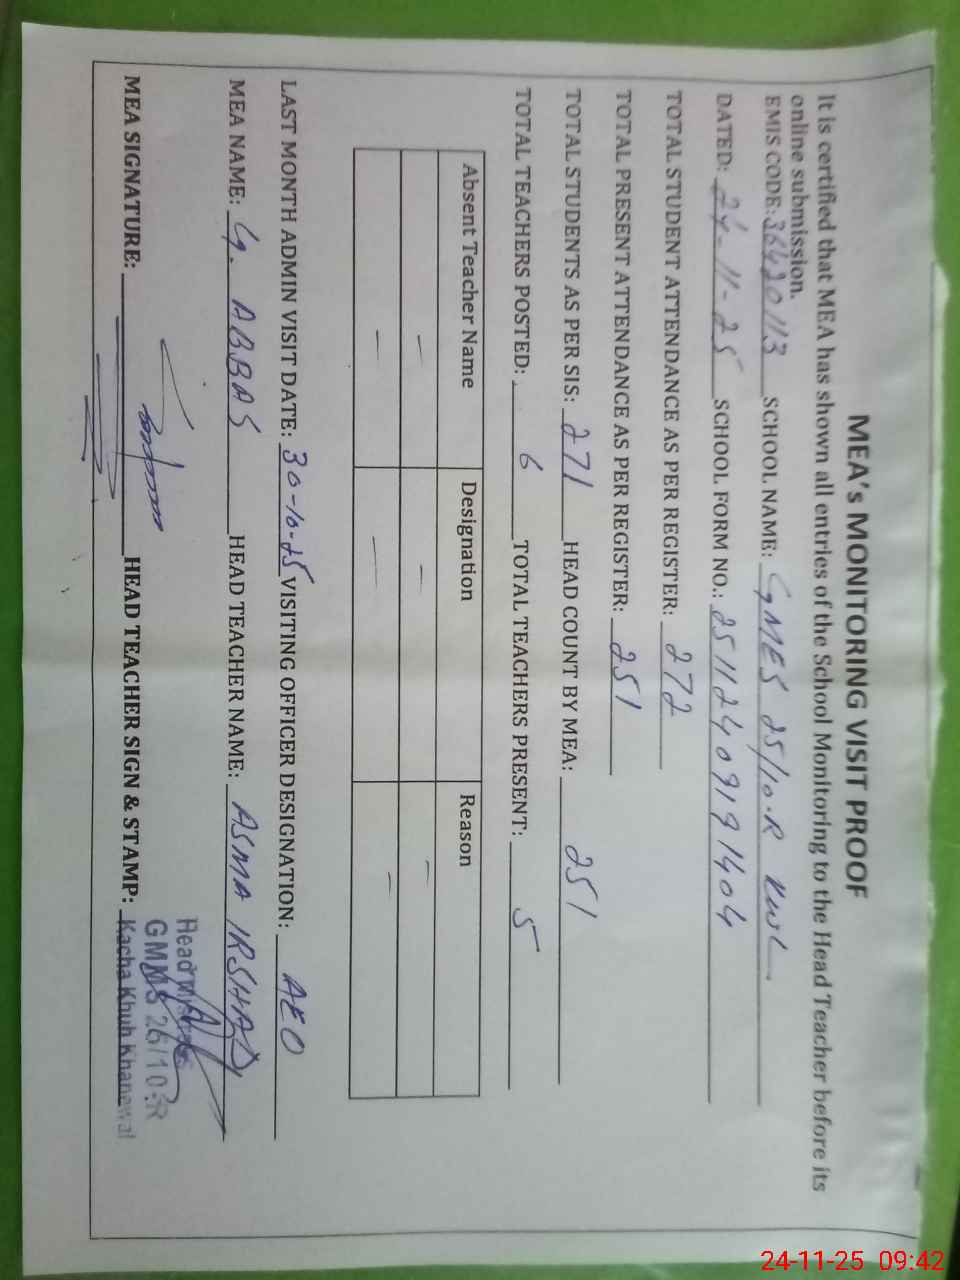 MEA's MONITORING VISIT PROOF
It is certified that MEA has shown all entries of the School Monitoring to the Head Teacher before its
online submission.
EMIS CODE: 36420113 SCHOOL NAME: GMES 25/10.R KWL.
DATED: 24-11-25 SCHOOL FORM NO.: 25112409191404
TOTAL STUDENT ATTENDANCE AS PER REGISTER: 272
TOTAL PRESENT ATTENDANCE AS PER REGISTER: 251
TOTAL STUDENTS AS PER SIS: 271 HEAD COUNT BY MEA: 251
TOTAL TEACHERS POSTED: 6 TOTAL TEACHERS PRESENT: 5
Absent Teacher Name Designation Reason
— — —
— — —
LAST MONTH ADMIN VISIT DATE: 30-10-25 VISITING OFFICER DESIGNATION: AEO
MEA NAME: G. ABBAS HEAD TEACHER NAME: ASMA IRSHAD
MEA SIGNATURE: HEAD TEACHER SIGN & STAMP:
Kacha Khuh Khanewal
24-11-25 09:42